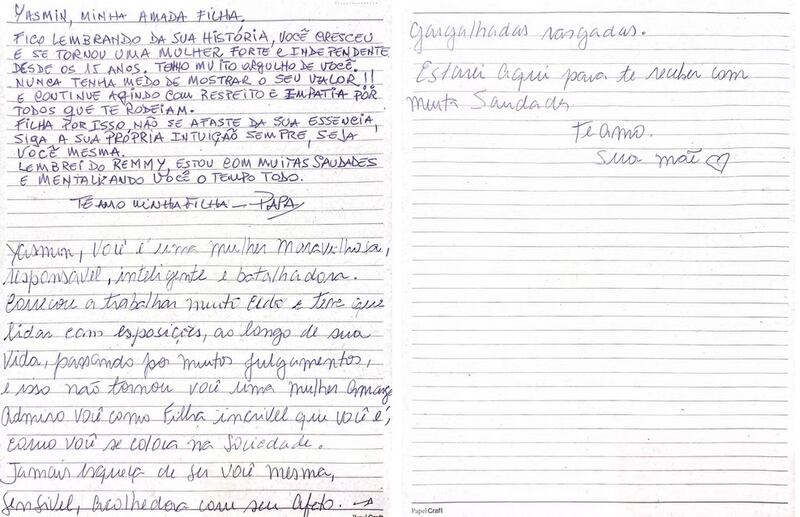 YASMIN, MINHA AMADA FILHA.
FICO LEMBRANDO DA SUA HISTÓRIA, VOCÊ CRESCEU
E SE TORNOU UMA MULHER FORTE E INDEPENDENTE
DESDE OS 15 ANOS, TENHO MUITO ORGULHO DE VOCÊ.
NUNCA TENHA MEDO DE MOSTRAR O SEU VALOR!!
E CONTINUE AGINDO COM RESPEITO E EMPATIA POR
TODOS QUE TE RODEIAM.
FILHA POR ISSO NÃO SE AFASTE DA SUA ESSENCIA,
SIGA A SUA PRÓPRIA INTUIÇÃO SEMPRE, SEJA
VOCÊ MESMA.
LEMBREI DO REMMY, ESTOU COM MUITAS SAUDADES
E MENTALIZANDO VOCÊ O TEMPO TODO.
TE AMO MINHA FILHA - PAPA
Yasmin, você é uma mulher maravilhosa,
responsável, inteligente e batalhadora.
Começou a trabalhar muito cedo e teve que
lidar com exposições, ao longo de sua
vida, passando por muitos julgamentos,
e isso não tornou você uma mulher amarga
Admiro você como filha incrível que você é,
como você se coloca na sociedade.
Jamais esqueça de ser você mesma,
sensível, acolhedora com seu afeto. →
Papel Craft
Gargalhadas rasgadas.
Estarei aqui para te receber com
muita Saudade
Te amo.
Sua mãe ♡
Papel Craft